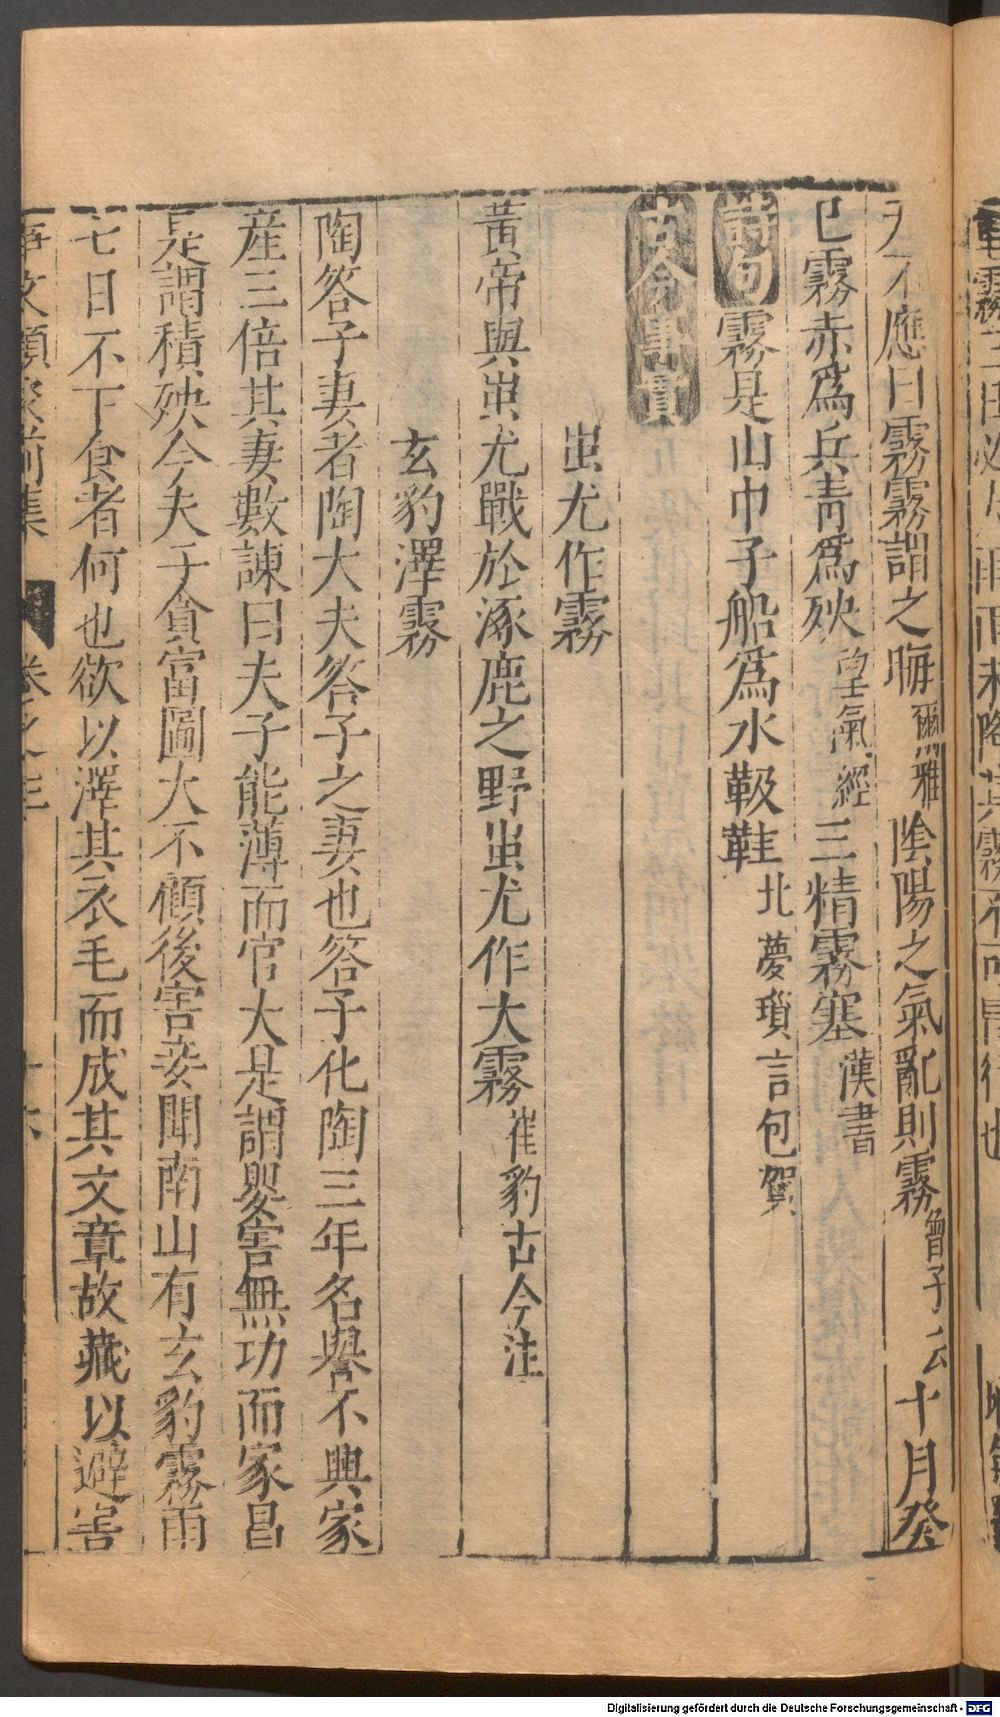 天不應曰霧霧謂之晦爾雅陰陽之氣亂則霧曾子云十月癸
巳霧赤為兵青為殃望氣經三精霧塞漢書
詩句霧是山巾子船為水靸鞋北夢瑣言包賀
古今事實
蚩尤作霧
黃帝與蚩尤戰於涿鹿之野蚩尤作大霧崔豹古今注
玄豹澤霧
陶答子妻者陶大夫答子之妻也答子化陶三年名譽不興家
産三倍其妻數諫曰夫子能薄而官大是謂嬰害無功而家昌
是謂積殃今夫子貪富圖大不顧後害妾聞南山有玄豹霧雨
七日不下食者何也欲以澤其衣毛而成其文章故藏以避害
事文類聚前集 卷之三 十六
Digitalisierung gefördert durch die Deutsche Forschungsgemeinschaft - DFG